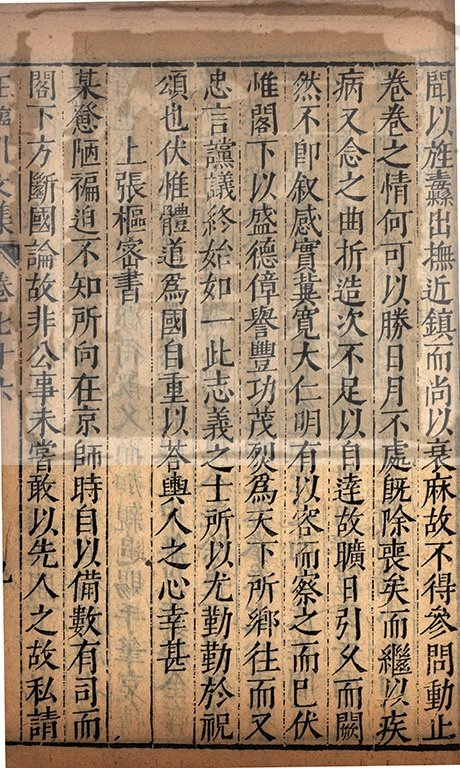 聞以旌纛出撫近鎮而尚以衰麻故不得參問動止
卷卷之情何可以勝日月不處旣除喪矣而繼以疾
病又念之曲折造次不足以自達故曠日引久而闕
然不卽叙感實冀寛大仁明有以容而察之而巳伏
惟閣下以盛德偉譽豐功茂烈爲天下所鄉往而又
忠言讜議終始如一此志義之士所以尤勤勤於祝
頌也伏惟體道爲國自重以荅輿人之心幸甚
上張樞密書
某愈陋褊迫不知所向在京師時自以備數有司而
閣下方斷國論故非公事未嘗敢以先人之故私請
臨川文集 卷七十六 九